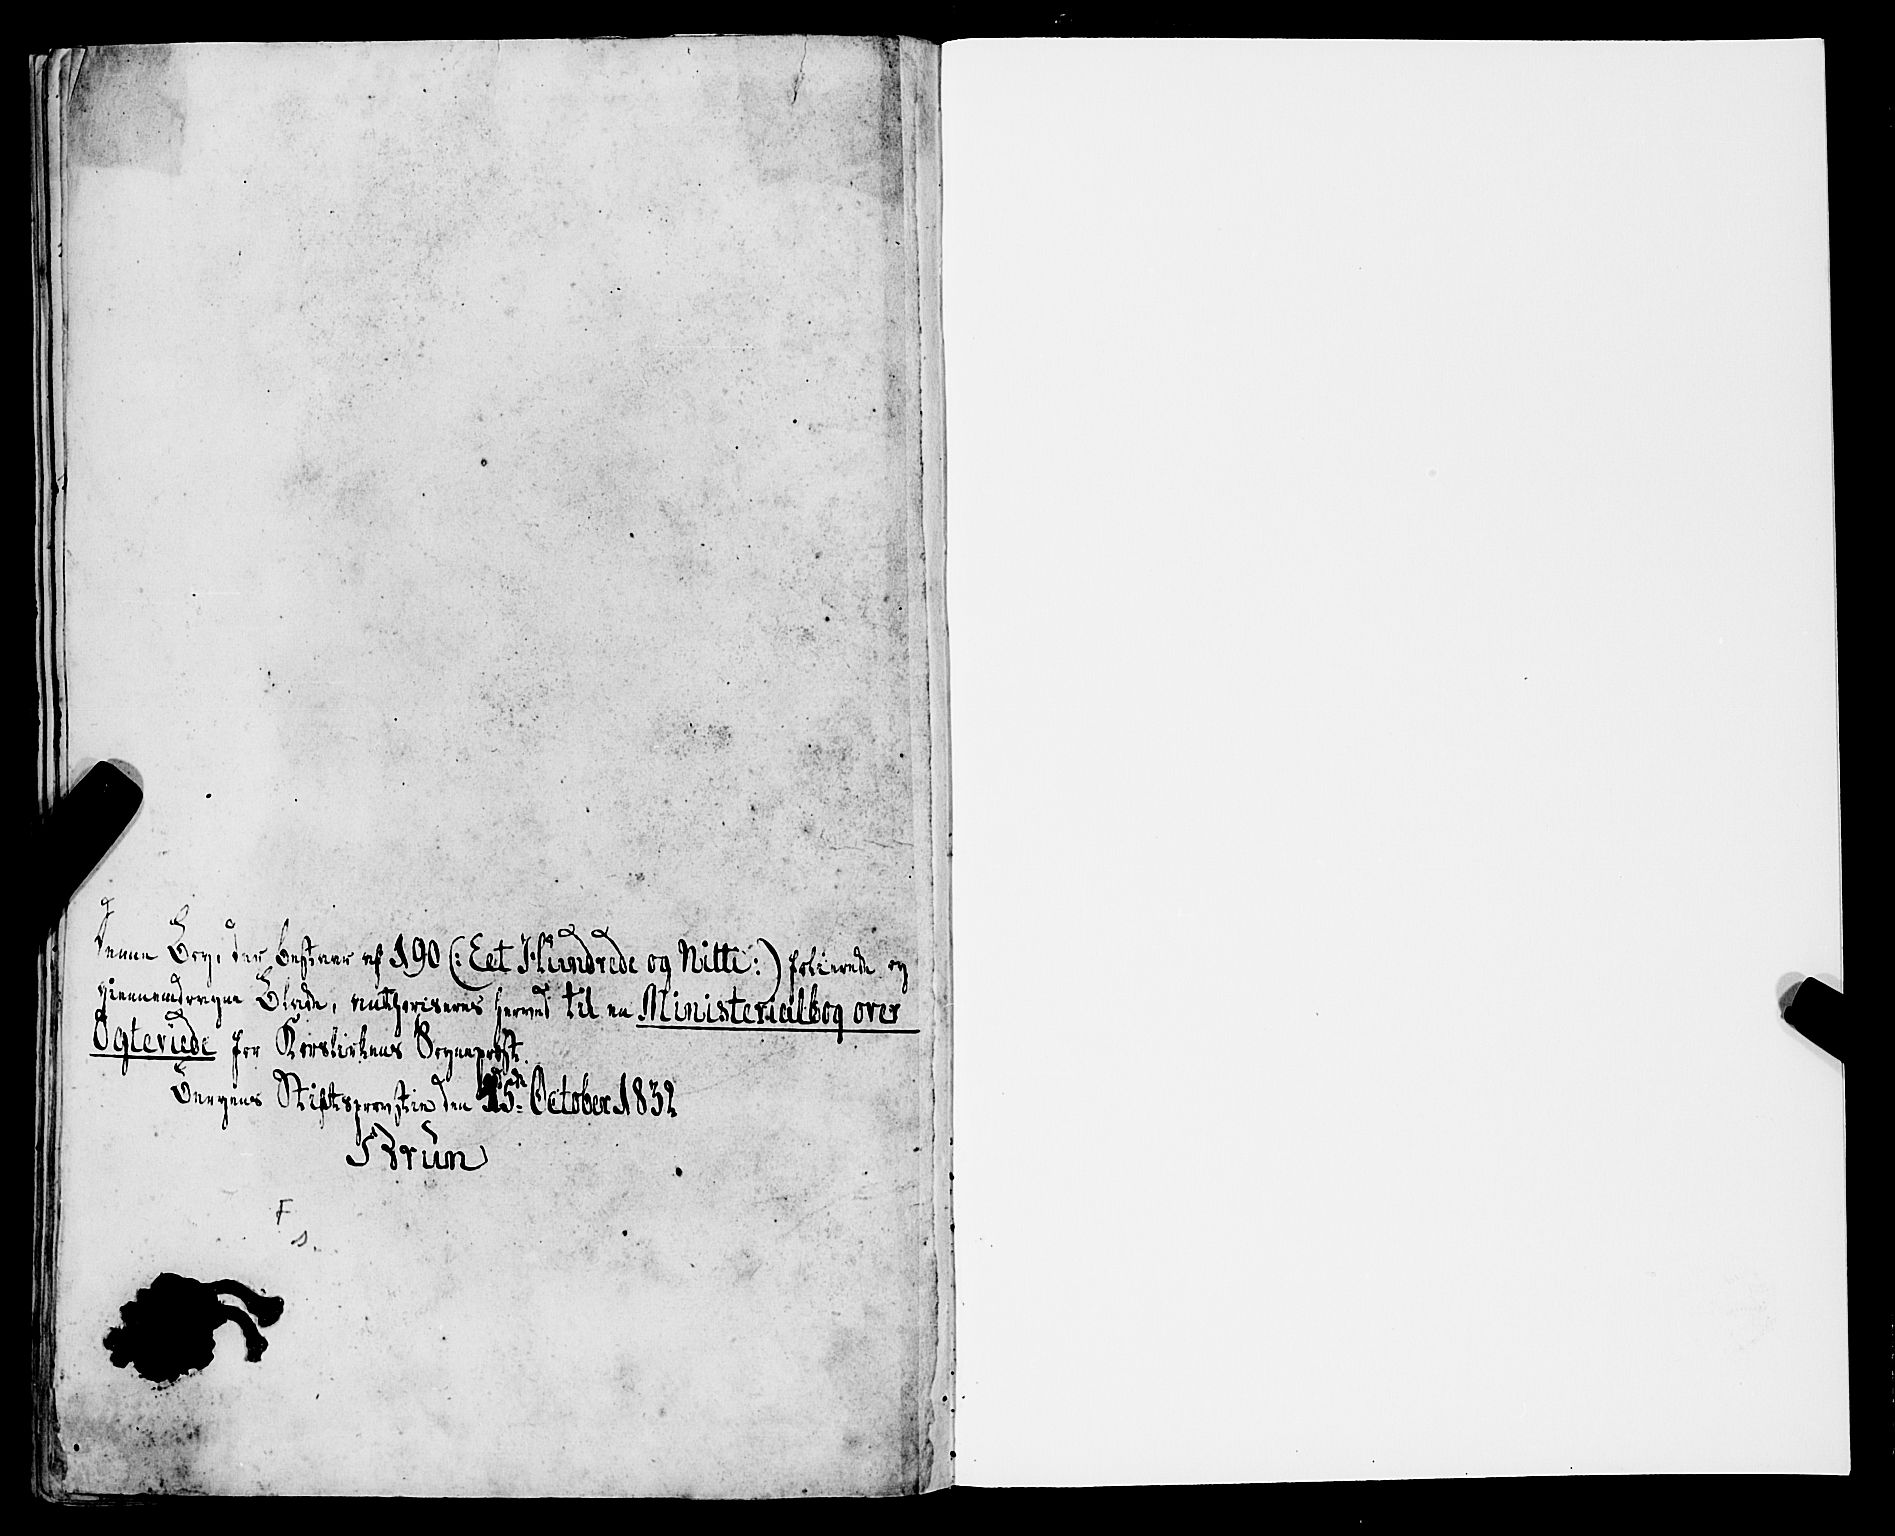 Denne Bog, der bestaar af 190 (: Eet Hundrede og Nitti :) folierede og
giennemdragne Blade, authoriseres herved til en Ministerialbog over
Ægteviede for Korskirkens Sogneprest.
Bergens Stiftsprovstie den 15de October 1832
Brun
F
s.